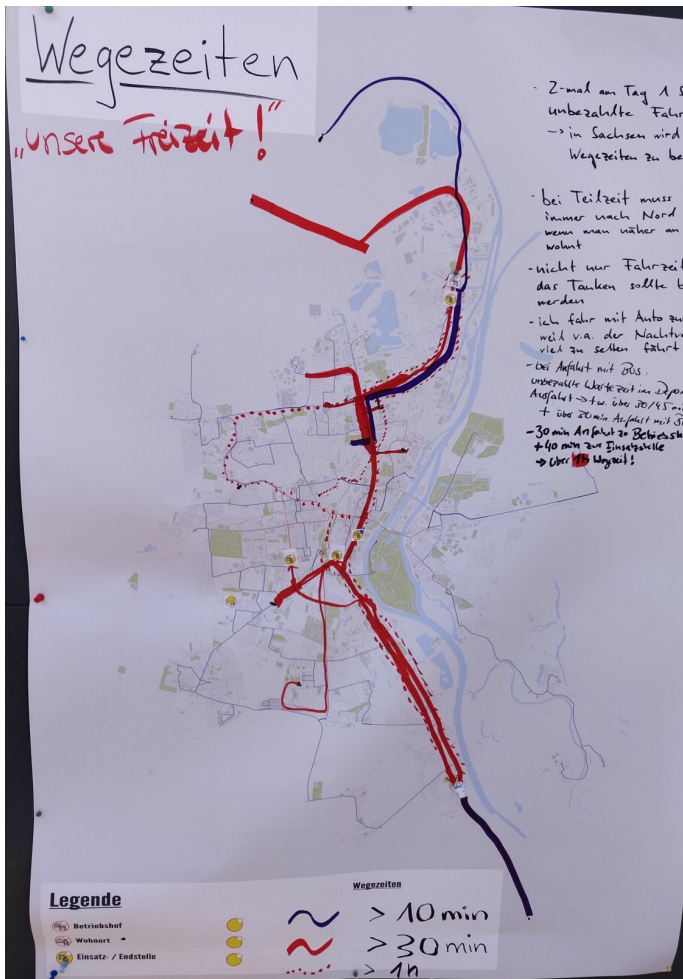 Wegezeiten
„unsere Freizeit!"
- 2-mal am Tag 1 S
unbezahlte Fahr
-> in Sachsen wird
Wegezeiten zu be
- bei Teilzeit muss
immer nach Nord
wenn man näher an
wohnt
- nicht nur Fahrzeit
das Tanken sollte b
werden
- ich fahr mit Auto zu
weil v.a. der Nachtve
viel zu selten fährt
- bei Anfahrt mit BUS:
unbezahlte Wartezeit im Depo
Ausfahrt -> tw. über 30/45 mi
+ über 20min. Anfahrt mit
- 30 min Anfahrt zu Betriebsh
+ 40 min zur Einsatzstelle
-> über 1h Wegzeit!
Legende
Betriebshof
Wohnort
Einsatz- / Endstelle
Wegezeiten
> 10 min
> 30 min
> 1h